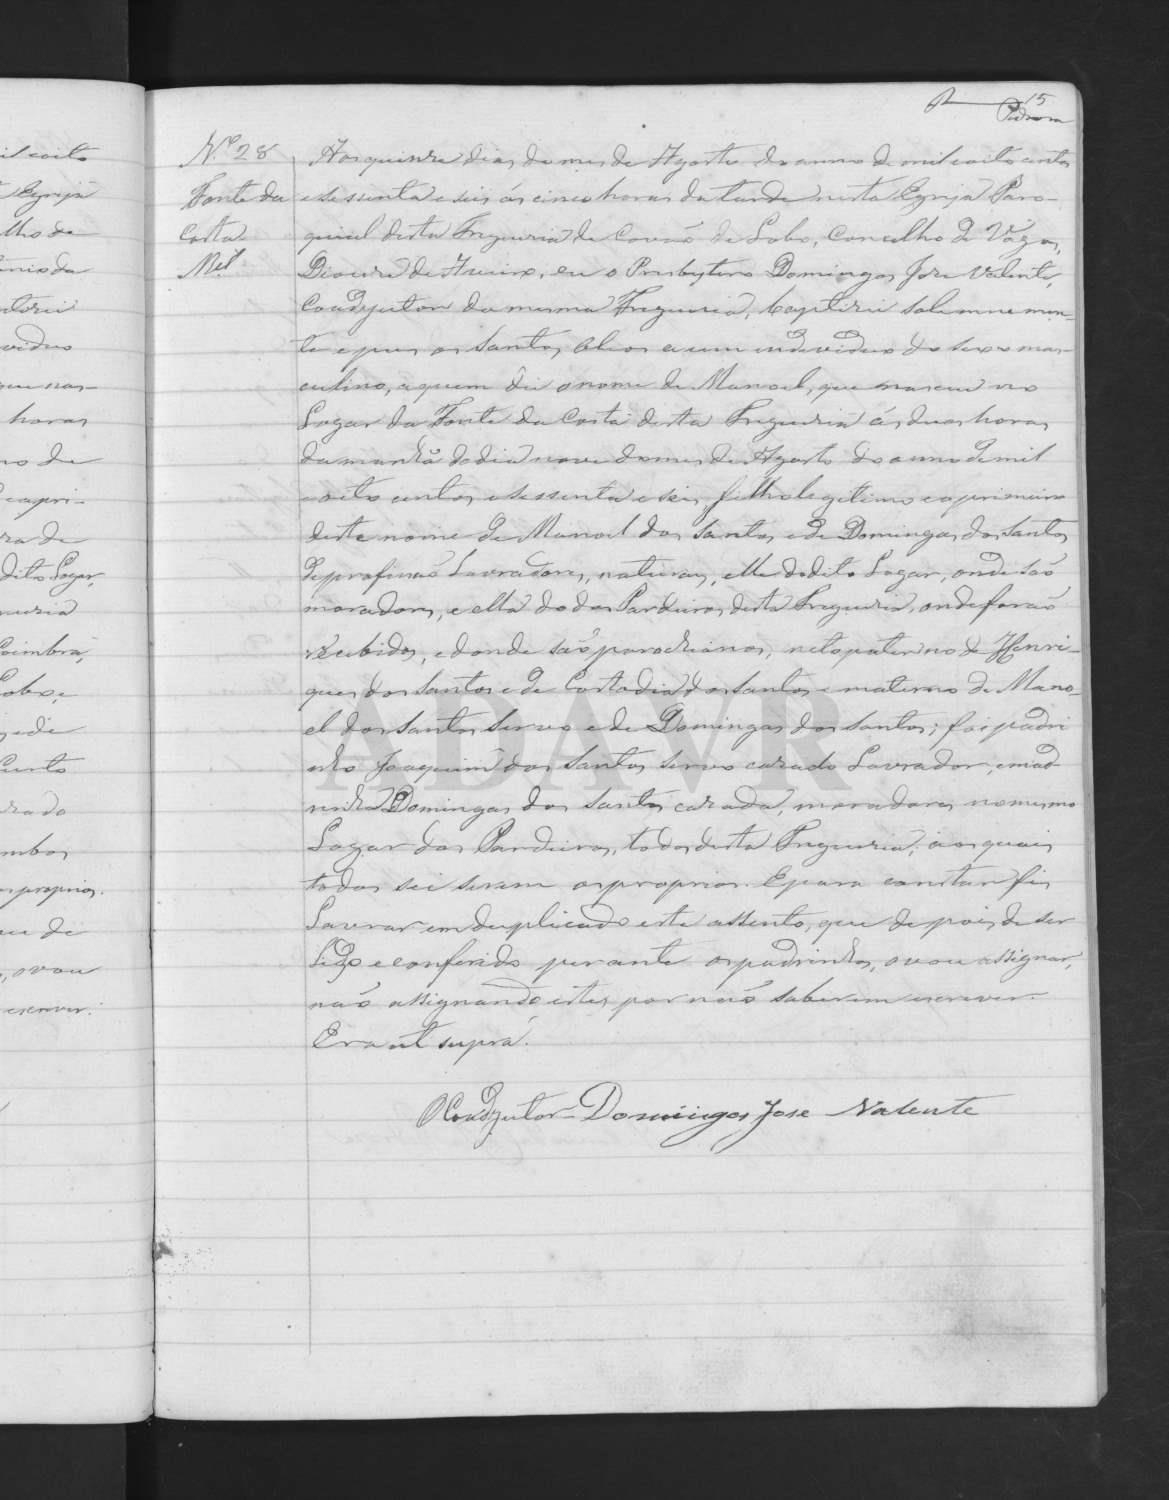 15
Nº 28
Fonte da
Costa
Mel
Aos quinze dias do mes de Agosto do anno de mil oito centos
e sessenta e seis ás cinco horas da tarde nesta Egreja Paro-
quial desta Freguezia de Covão de Lobo, Concelho de Vagos,
Diocese de Aveiro, eu o Presbytero Domingos Jose Valente,
Coadjutor da mesma Freguezia, baptizei solemnemen-
te e puz os Santos Oleos a um individuo do sexo mas-
culino, a quem dei o nome de Manoel, que nasceu no
Logar da Fonte da Costa desta Freguezia ás duas horas
da manhã do dia nove do mes de Agosto do anno de mil
oito centos e sessenta e seis, filho legitimo e o primeiro
deste nome de Manoel dos Santos e de Domingas dos Santos
de profissão Lavradores, naturaes, elle do dito Logar, onde são
moradores, e ella do dos Pardeiros desta Freguezia, onde forão
recebidos, e donde são parochianos, neto paterno de Henri-
ques dos Santos e de Custodia dos Santos e materno de Mano-
el dos Santos Servo e de Domingas dos Santos; foi padri
nho Joaquim dos Santos Servo casado Lavrador, e mad-
rinha Domingas dos Santos casada, moradores no mesmo
Logar dos Pardeiros, todos desta Freguezia, aos quais
todos sei serem os proprios. E para constar fiz
Lavrar em duplicado este assento, que depois de ser
Lido e conferido perante os padrinhos, o vou assignar,
não assignando estes por não saberem escrever.
Era ut supra.
O Coadjutor Domingos Jose Valente
oito
Egreja
lho de
horas
no de
ra de
dito Logar,
Coimbra,
Lobo,
rado
ambos
os proprios.
, o vou
escrever.
ADAVR